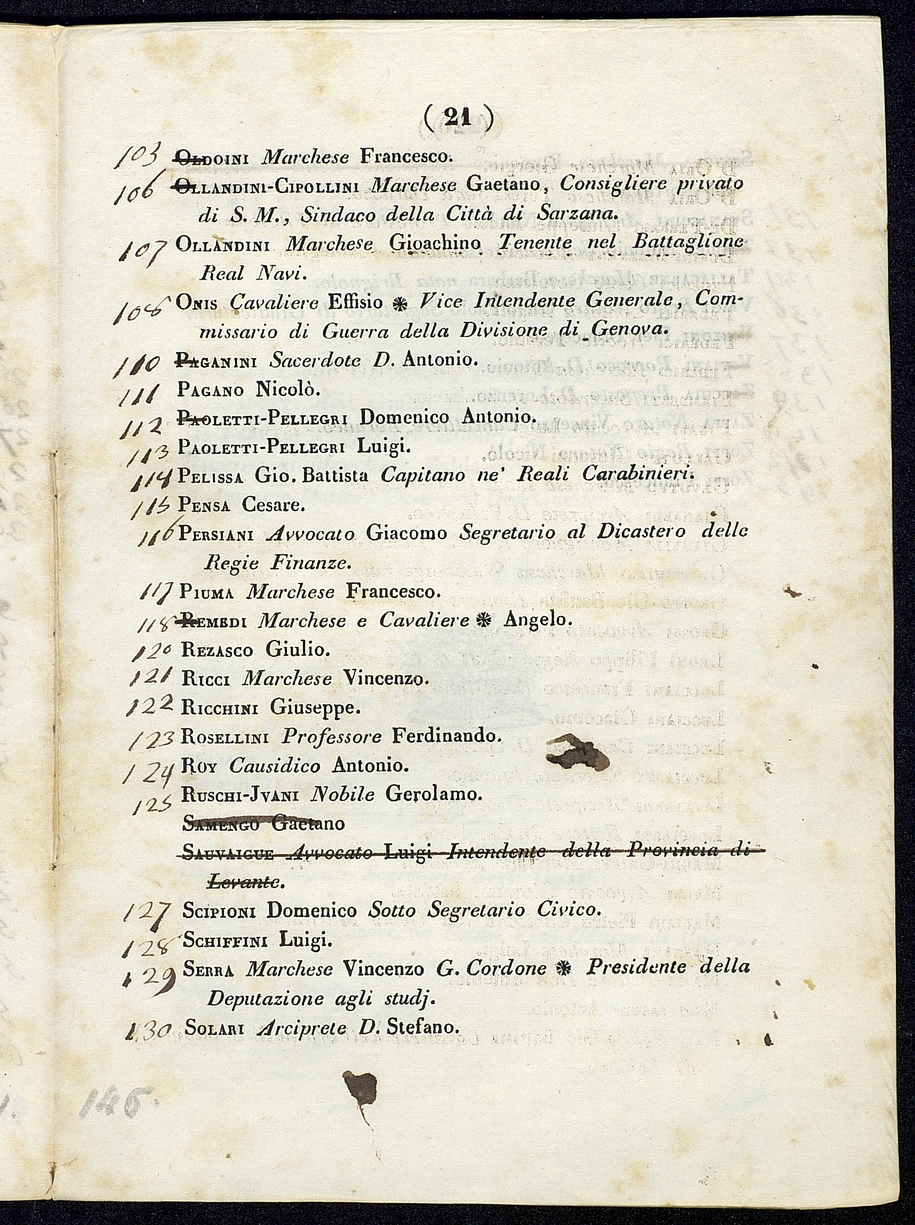 ( 21 )
103 OLDOINI Marchese Francesco.
106 OLLANDINI-CIPOLLINI Marchese Gaetano, Consigliere privato
di S. M., Sindaco della Città di Sarzana.
107 OLLANDINI Marchese Gioachino Tenente nel Battaglione
Real Navi.
108 ONIS Cavaliere Effisio ❋ Vice Intendente Generale, Com-
missario di Guerra della Divisione di Genova.
110 PAGANINI Sacerdote D. Antonio.
111 PAGANO Nicolò.
112 PAOLETTI-PELLEGRI Domenico Antonio.
113 PAOLETTI-PELLEGRI Luigi.
114 PELISSA Gio. Battista Capitano ne' Reali Carabinieri.
115 PENSA Cesare.
116 PERSIANI Avvocato Giacomo Segretario al Dicastero delle
Regie Finanze.
117 PIUMA Marchese Francesco.
118 REMEDI Marchese e Cavaliere ❋ Angelo.
120 REZASCO Giulio.
121 RICCI Marchese Vincenzo.
122 RICCHINI Giuseppe.
123 ROSELLINI Professore Ferdinando.
124 ROY Causidico Antonio.
125 RUSCHI-JVANI Nobile Gerolamo.
SAMENGO Gaetano
SAUVAIGUE Avvocato Luigi Intendente della Provincia di
Levante.
127 SCIPIONI Domenico Sotto Segretario Civico.
128 SCHIFFINI Luigi.
129 SERRA Marchese Vincenzo G. Cordone ❋ Presidente della
Deputazione agli studj.
130 SOLARI Arciprete D. Stefano.